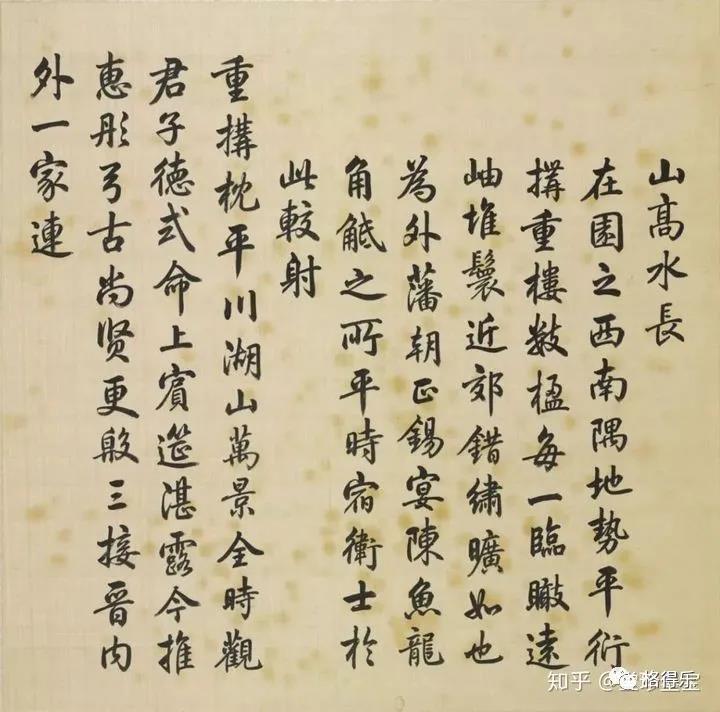 山高水長
在園之西南隅地勢平衍
搆重樓數楹每一臨瞰遠
岫堆鬟近郊錯繡曠如也
為外藩朝正錫宴陳魚龍
角觝之所平時宿衛士於
此較射
重搆枕平川湖山萬景全時觀
君子德式命上賓筵湛露今推
惠彤弓古尚賢更殷三接晉内
外一家連
知乎